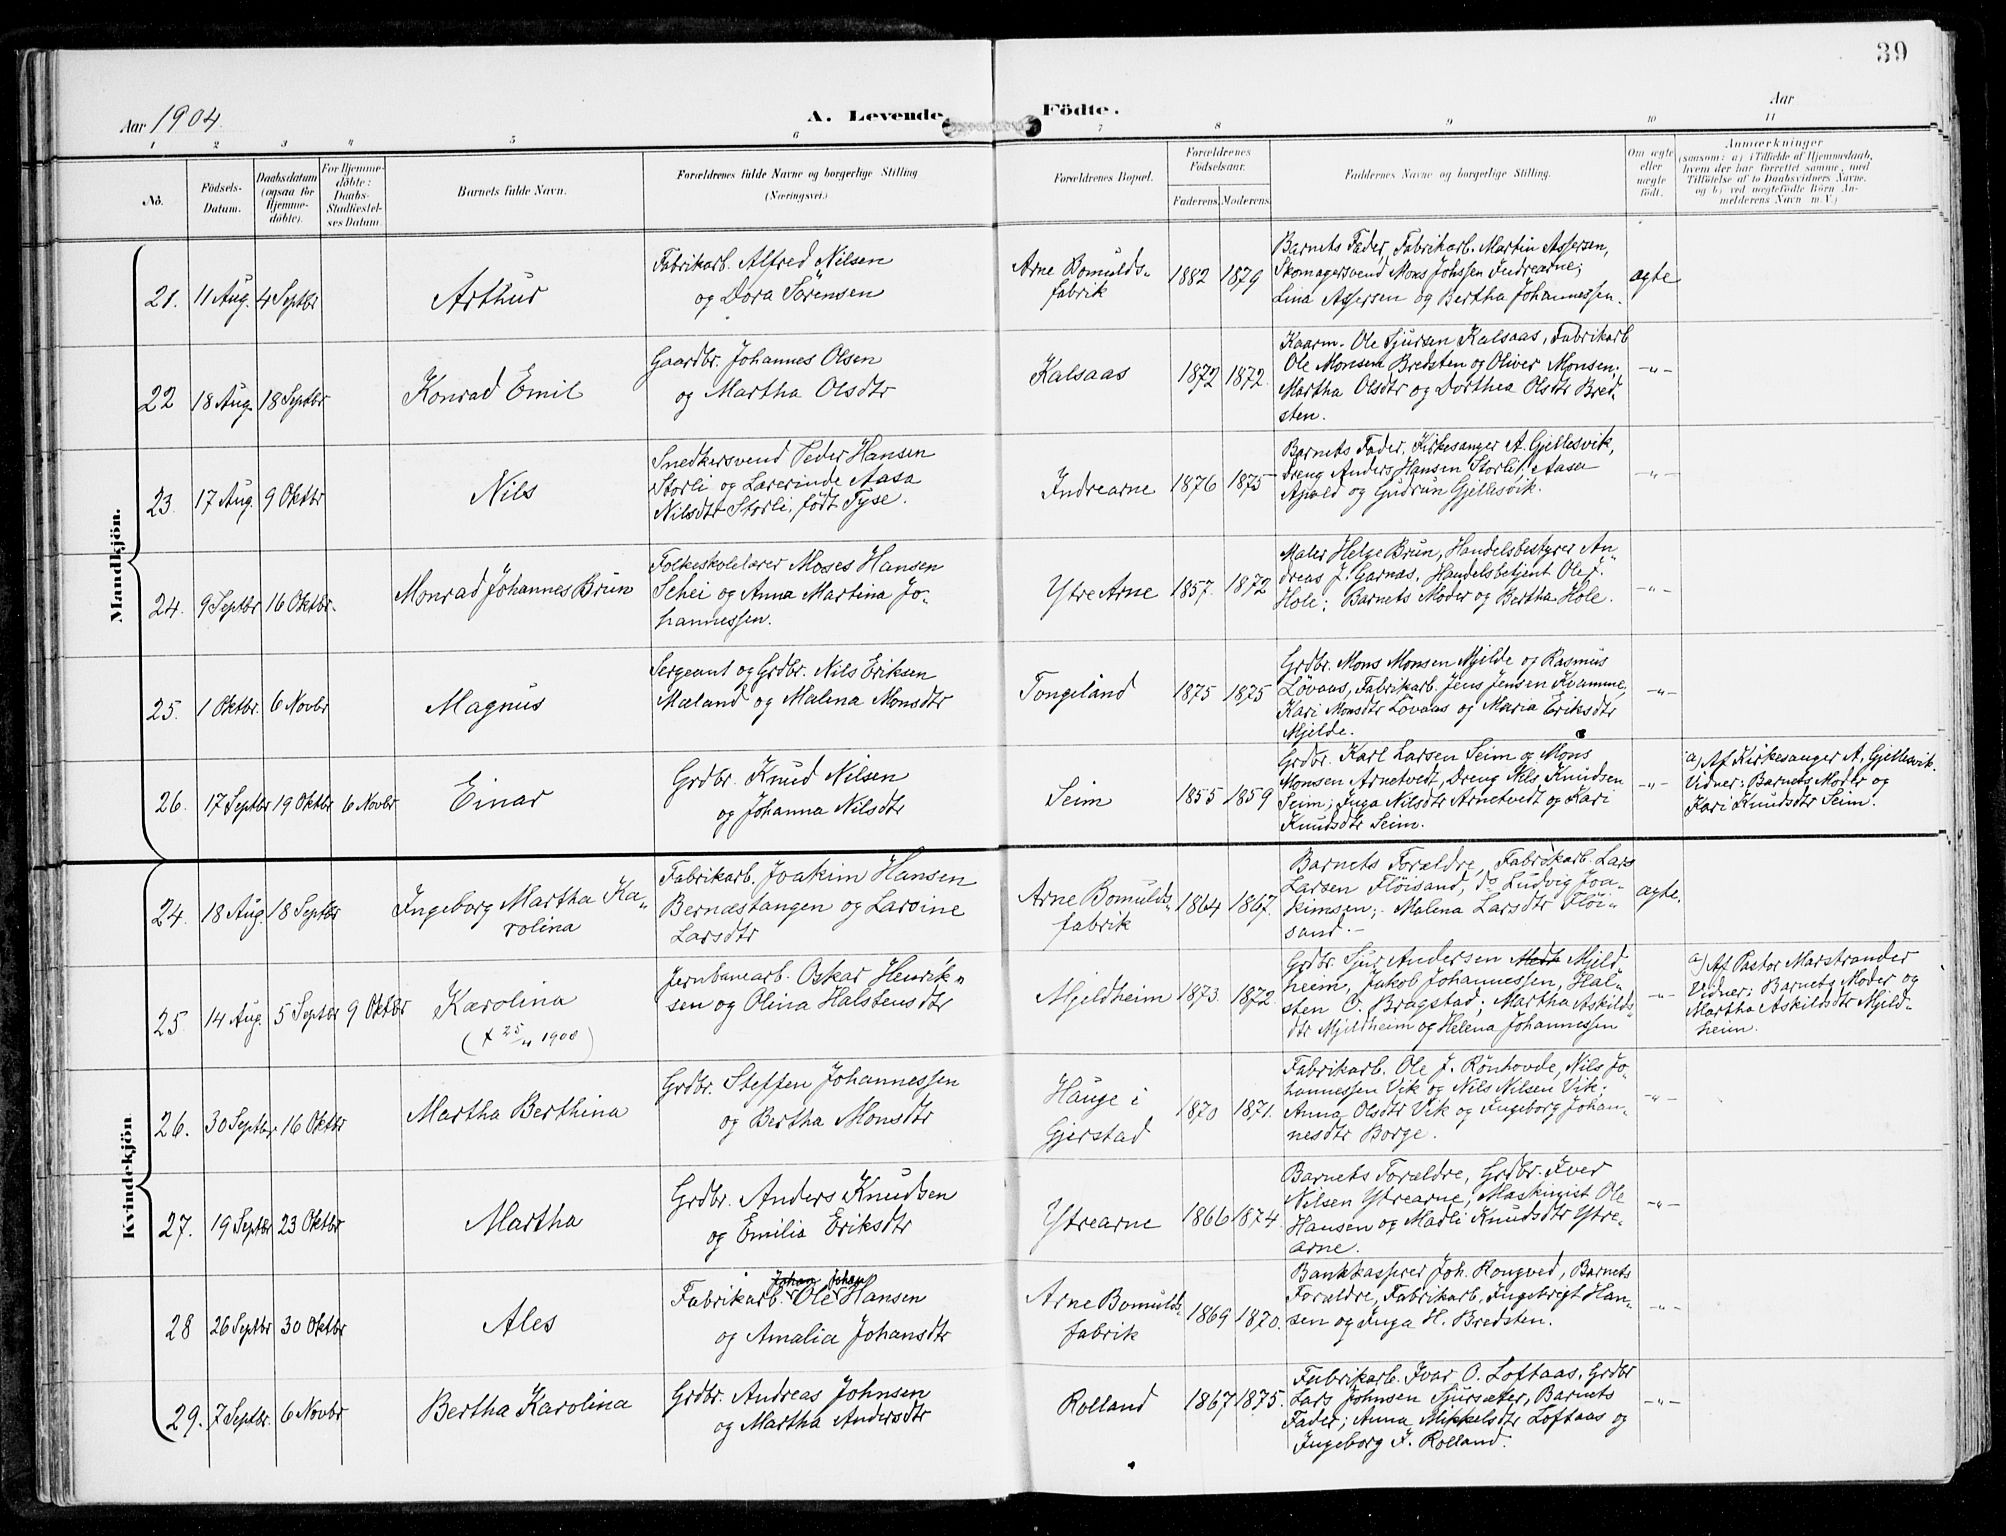 39
Aar 1904
A. Levende
Födte.
Aar
1 2 3 4 5 6 7 8 9 10 11
No.
Födsels-
Datum.
Daabsdatum
(ogsaa for
Hjemme-
döbte).
For Hjemme-
döbte:
Daabs-
Stadfæstel-
ses Datum.
Barnets fulde Navn.
Forældrenes fulde Navne og borgerlige Stilling
(Næringsvei.)
Forældrenes Bopæl.
Forældrenes
Födselsaar.
Faderens.
Moderens.
Faddernes Navne og borgerlige Stilling.
Om ægte
eller
uægte
födt.
Anmærkninger
(saasom: a) i Tilfælde af Hjemmedaab,
hvem der har forrettet samme, med
Tilföielse af to Daabsvidners Navne,
og b) ved uægtefödte Börn An-
melderens Navn m. V.)
Mandkjön.
21. 11 Aug. 4 Septbr
Arthur
Fabrikarb. Alfred Nilsen
og Dora Sørensen
Arne Bomulds-
fabrik
1882 1879
Barnets Fader, Fabrikarb. Martin Assersen,
Skomagersvend Mons Johssen Indrearne;
Lina Assersen og Bertha Johannessen.
ægte
22 18 Aug. 18 Septbr
Konrad Emil
Gaardbr. Johannes Olsen
og Martha Olsdtr
Kalsaas
1872 1872.
Kaarm. Ole Sjursen Kalsaas, Fabrikarb
Ole Monsen Bredsten og Oliver Monsen;
Martha Olsdtr og Dorthea Olsdtr Bred-
sten.
-"-
23. 17 Aug. 9 Oktbr
Nils
Snedkersvend Peder Hansen
Storli og Lærerinde Aasa
Nilsdtr Storli, født Tyse.
Indrearne
1876 1875
Barnets Fader, Kirkesanger A. Gjellesvik,
Dreng Anders Hansen Storli; Aasa
Apold og Gudrun Gjellesvik.
-"-
24. 9 Septbr 16 Oktbr.
Monrad Johannes Brun
Folkeskolelærer Moses Hansen
Schei og Anna Martina Jo-
hannessen.
Ytre Arne
1857. 1872
Maler Helge Brun, Handelsbestyrer An-
dreas J. Garnæs, Handelsbetjent Ole J.
Hole; Barnets Moder og Bertha Hole.
-"-
25. 1 Oktbr. 6 Novbr
Magnus
Sergeant og Grdbr. Nils Eriksen
Mæland og Malena Monsdtr
Tongeland
1875 1875
Grdbr. Mons Monsen Mjelde og Rasmus
Løvaas, Fabrikarb. Jens Jensen Kvamme,
Kari Monsdtr Løvaas og Maria Eriksdtr
Mjelde.
-"-
26. 17 Septbr 19 Oktbr 6 Novbr
Einar
Grdbr. Knud Nilsen
og Johanna Nilsdtr
Seim
1855 1859
Grdbr. Karl Larsen Seim og Mons
Monsen Arnetvedt, Dreng Nils Knudsen
Seim; Inga Nilsdtr Arnetvedt og Kari
Knudsdtr Seim.
-"-
a) Af Kirkesanger A. Gjellesvik.
Vidner: Barnets Moder og
Kari Knudsdtr Seim.
Kvindekjön
24. 18 Aug. 18 Septbr
Ingeborg Martha Ka-
rolina
Fabrikarb. Joakim Hansen
Bernæstangen og Larsine
Larsdtr
Arne Bomulds-
fabrik
1864 1867.
Barnets Forældre, Fabrikarb. Lars
Larsen Fløisand, do Ludvig Joa-
kimsen; Malena Larsdtr Fløi-
sand.-
ægte.
25. 14 Aug. 5 Septbr 9 Oktbr
Karolina
( † 25/11 1908 )
Jernbanearb. Oskar Henrik-
sen og Olina Halstensdtr
Mjeldheim
1873. 1872.
Grdbr. Sjur Andersen Mjeld
heim, Jakob Johannessen, Hal-
sten O. Bragstad; Martha Askilds-
dtr Mjeldheim og Helena Johannessen
-"-
a) Af Pastor Marstrander
Vidner: Barnets Moder og
Martha Askildsdtr Mjeld-
heim.
26. 30 Septbr 16 Oktbr
Martha Berthina
Grdbr. Steffen Johannessen
og Bertha Monsdtr
Hauge i
Gjerstad
1870 1871.
Fabrikarb. Ole J. Rönhovde, Nils Jo-
hannessen Vik og Nils Nilsen Vik;
Anna Olsdtr Vik og Ingeborg Johan-
nesdtr Borge.
-"-
27. 19 Septbr 23 Oktbr
Martha
Grdbr. Anders Knudsen
og Emilia Eriksdtr
Ytrearne
1866 1874.
Barnets Forældre, Grdbr. Iver
Nilsen Ytrearne, Maskinist Ole
Hansen og Madli Knudsdtr Ytre-
arne.
-"-
28 26 Septbr 30 Oktbr
Ales
Johan Johan
Fabrikarb. Ole Hansen
og Amalia Johansdtr
Arne Bomulds-
fabrik
1869 1870.
Bankkasserer Joh. Rongved, Barnets
Forældre, Fabrikarb. Ingebrigt Han-
sen og Inga H. Bredsten.
-"-
29. 7 Septbr. 6 Novbr
Bertha Karolina
Grdbr. Andreas Johnsen
og Martha Andersdtr
Rolland
1867 1875.
Fabrikarb. Ivar O. Loftaas, Grdbr
Lars Johnsen Sjursæter, Barnets
Fader; Anna Mikkelsdtr Loftaas og
Ingeborg J. Rolland.
-"-